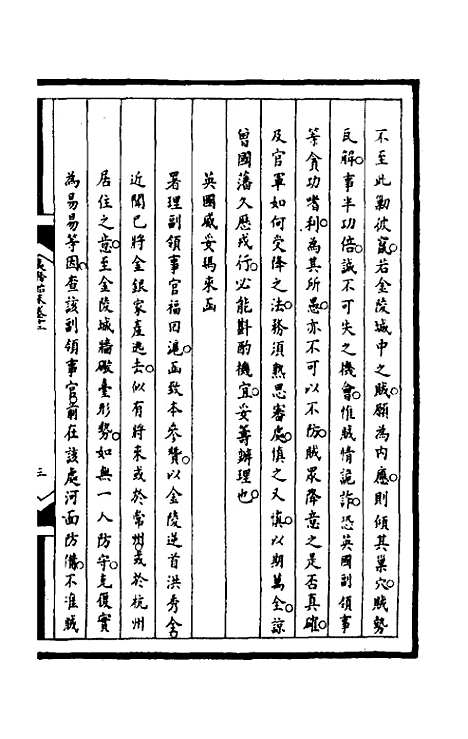 不至此勦彼竄。若金陵城中之賊。願為內應。則傾其巢穴。賊勢
瓦解。事半功倍。誠不可失之機會。惟賊情詭詐。恐英國副領事
等貪功嗜利。為其所愚。亦不可以不防。賊眾降意之是否真確。
及官軍如何受降之法。務須熟思審處。慎之又慎。以期萬全。諒
曾國藩久歷戎行。必能斟酌機宜。妥籌辦理也。
英國威妥瑪來函
署理副領事官福因滬函致本參贊。以金陵逆首洪秀全
近聞已將金銀家產逃去。似有將來或於常州。或於杭州
居住之意。至金陵城牆礮臺形勢。如無一人防守。克復實
為易易等因。查該副領事官前在該處河面防備。不准賊
三